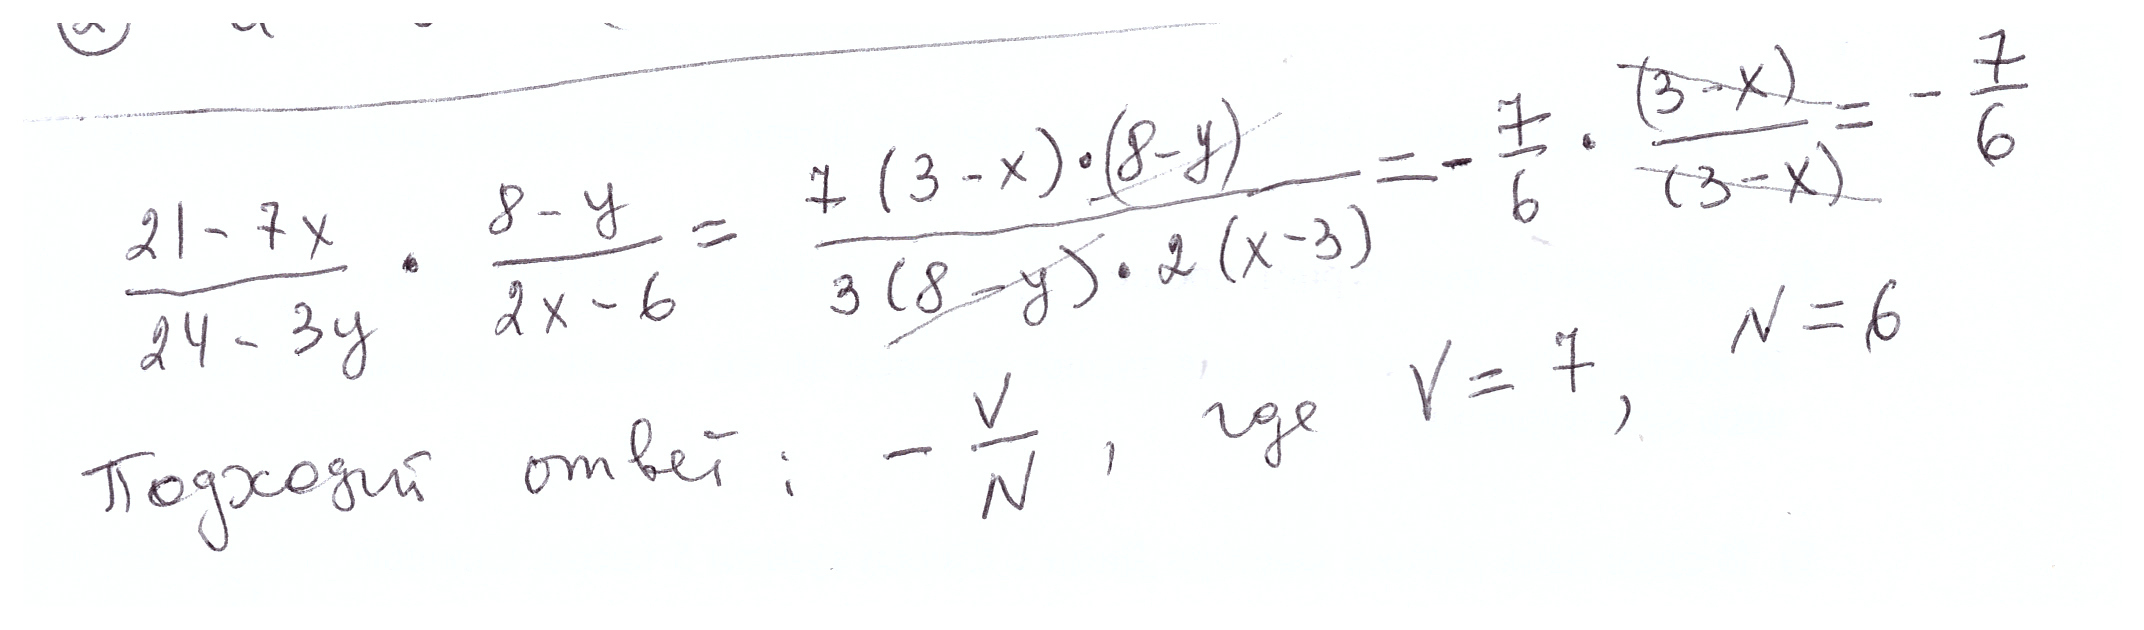 21-7x/24-3y · 8-y/2x-6 = 7(3-x)·(8-y)/3(8-y)·2(x-3) = -7/6 · (3-x)/(3-x) = -7/6
Подходит ответ: -V/N, где V=7, N=6